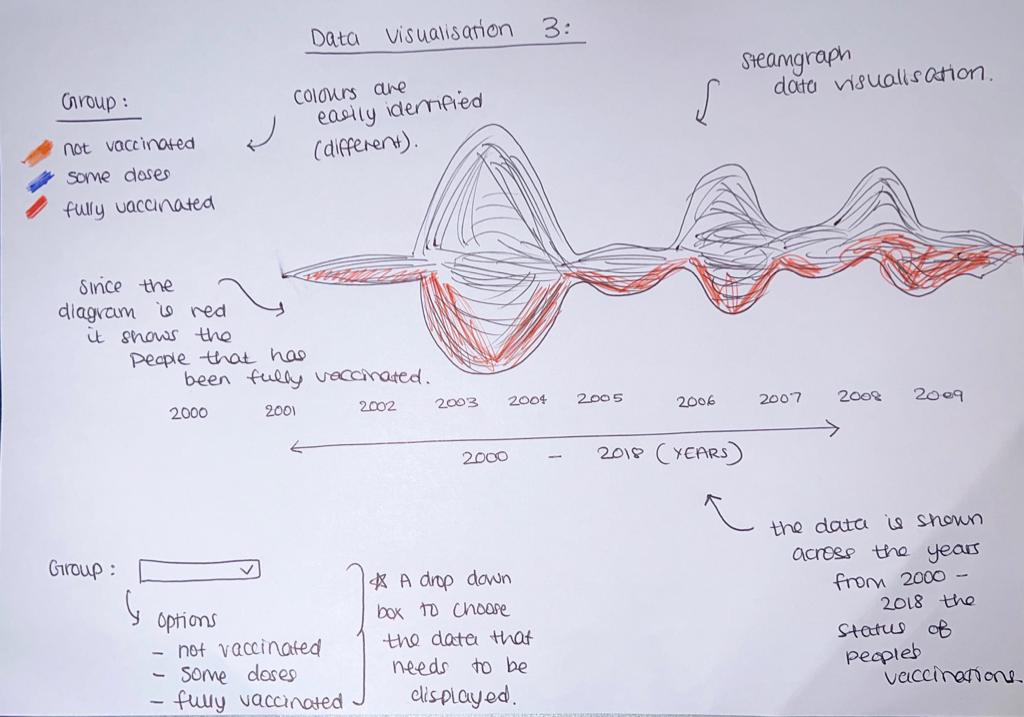 Data Visualisation 3:
Group:
not vaccinated
some doses
fully vaccinated
colours are
easily identified
(different).
steamgraph
data visualisation.
since the
diagram is red
it shows the
people that has
been fully vaccinated.
2000 2001 2002 2003 2004 2005 2006 2007 2008 2009
2000 - 2018 (YEARS)
the data is shown
across the years
from 2000 -
2018 the
status of
people's
vaccinations.
Group:
options
- not vaccinated
- some doses
- fully vaccinated
* A drop down
box to choose
the data that
needs to be
displayed.